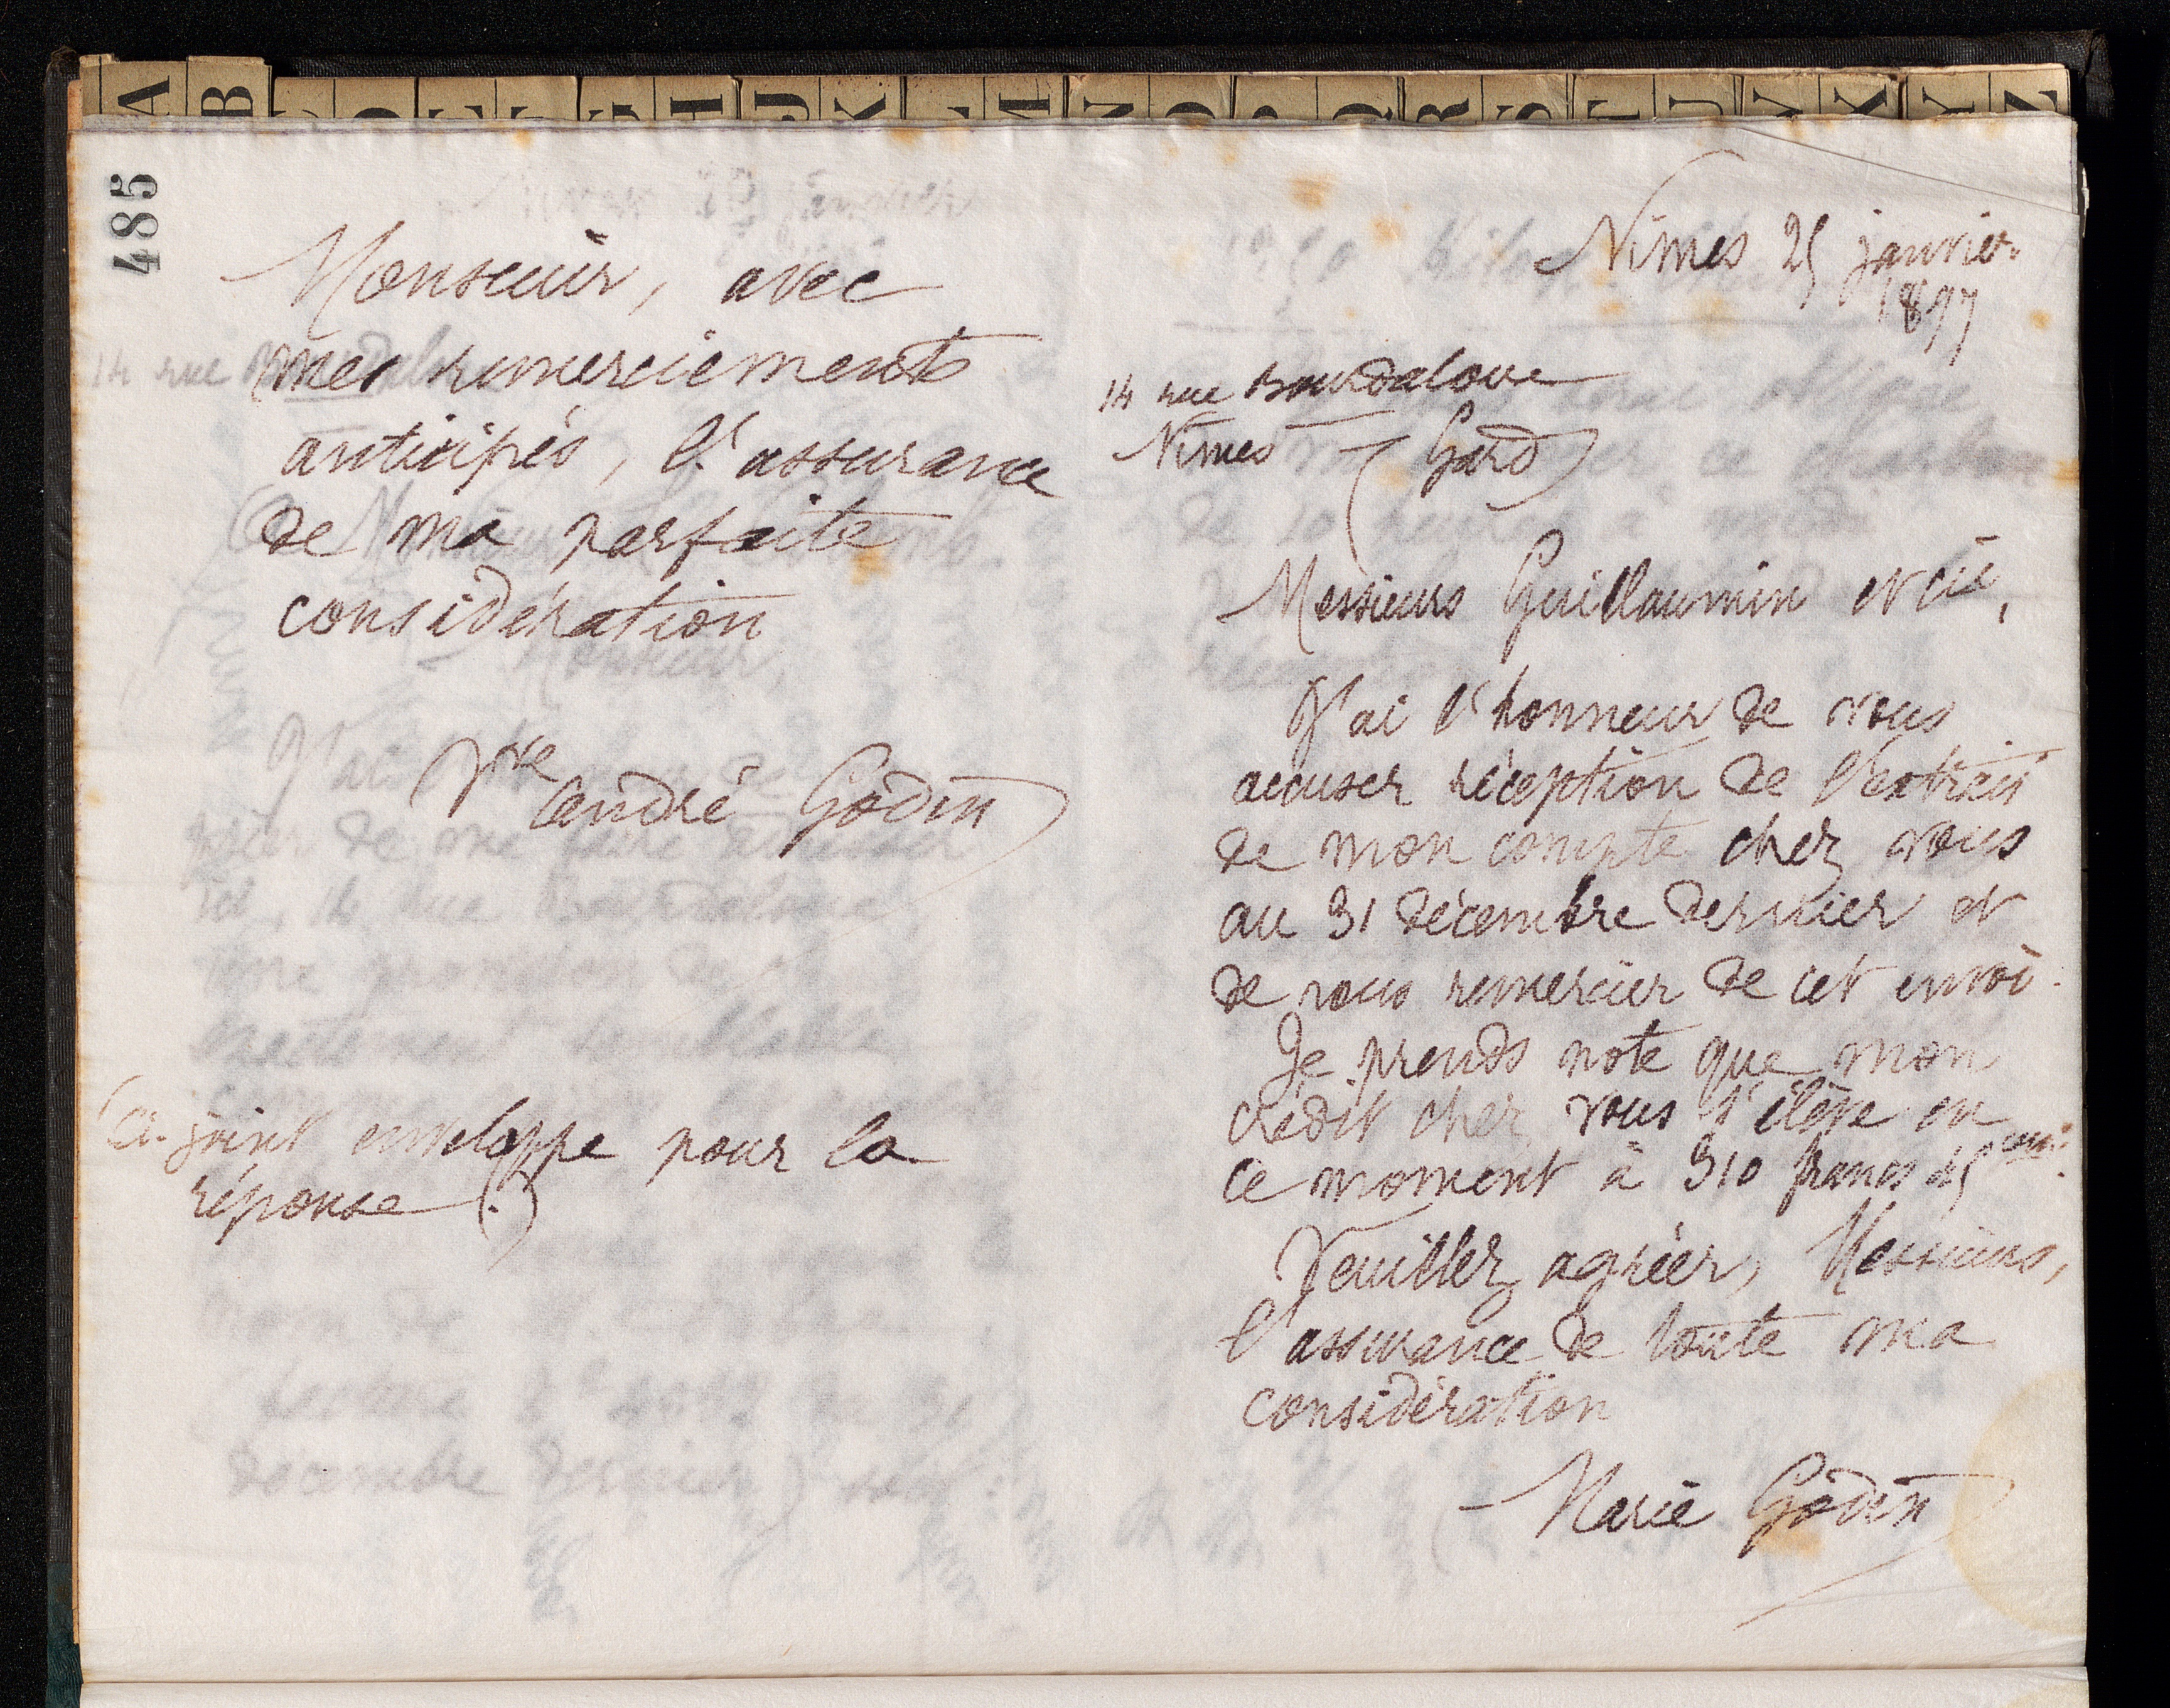 A B J K N Q R S T X Z
485
Monsieur, avec
mes remerciements
anticipés, l'assurance
de ma parfaite
considération
Vve André Godin
(Ci-joint enveloppe pour la
réponse.)
Nîmes 25 janvier
1897
14 rue Bourdaloue
Nîmes (Gard)
Messieurs Guillaumin et Cie,
J'ai l'honneur de vous
accuser réception de l'extrait
de mon compte chez vous
au 31 décembre dernier et
de vous remercier de cet envoi.
Je prends note que mon
crédit chez vous s'élève en
ce moment à 310 francs 45 cmes.
Veuillez agréer, Messieurs,
l'assurance de toute ma
considération
Marie Godin